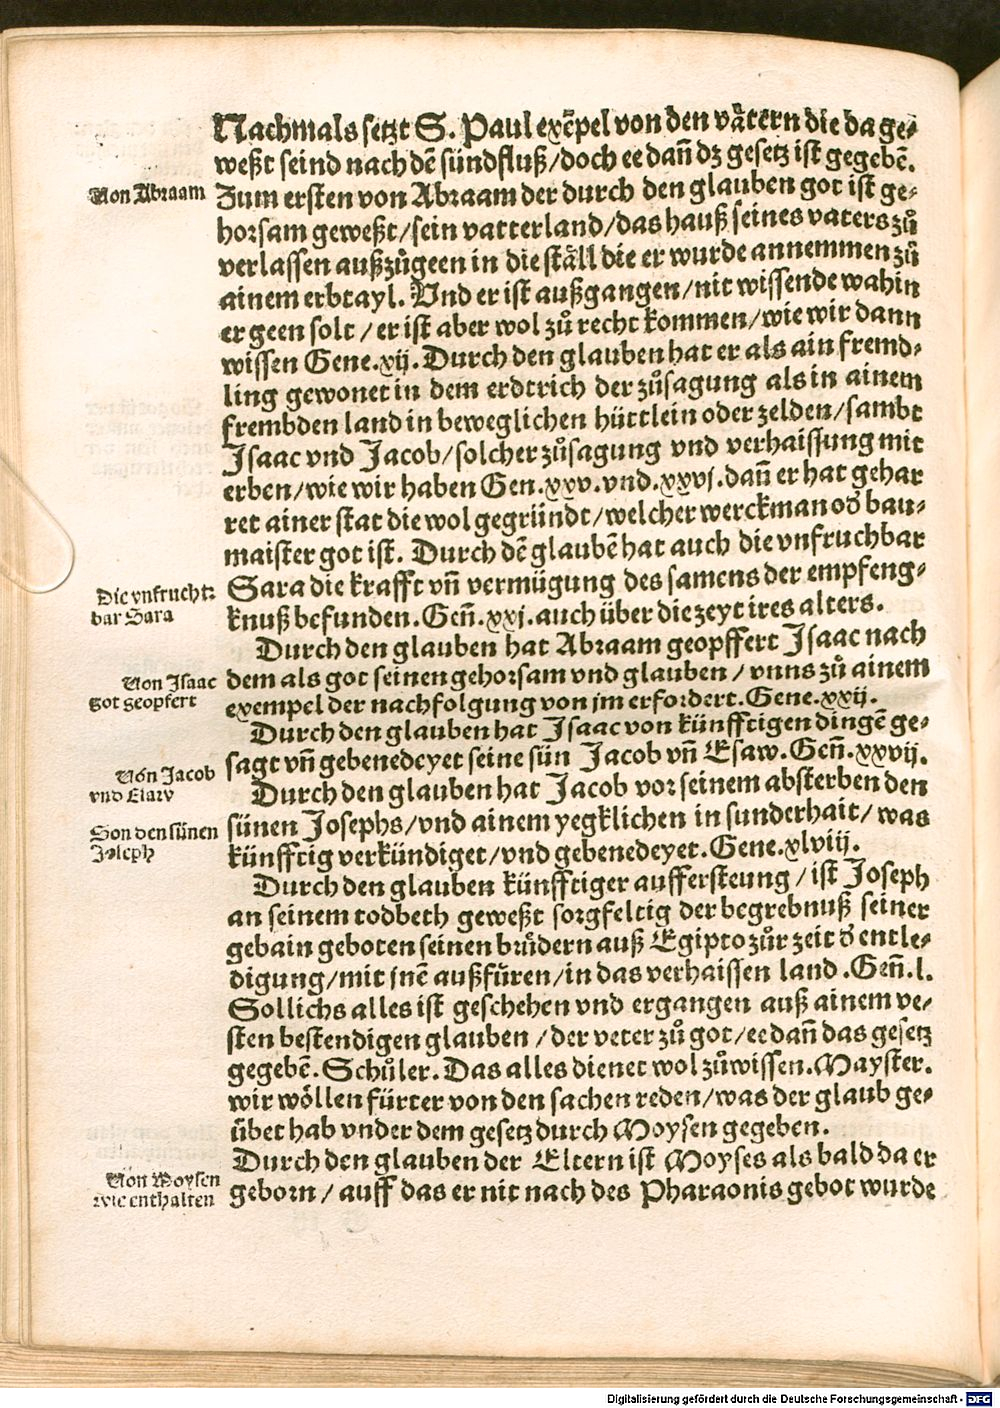 Nachmals setzt S. Paul exẽpel von den våtern die da ge⸗
weßt seind nach dẽ sündfluß/doch ee dañ dz gesetz ist gegebẽ.
Von Abraam
Zum ersten von Abraam der durch den glauben got ist ge⸗
horsam geweßt/sein vatterland/das hauß seines vaters zů
verlassen außzůgeen in die ståll die er wurde annemmen zů
ainem erbtayl. Vnd er ist außgangen/nit wissende wahin
er geen solt/er ist aber wol zů recht kommen/wie wir dann
wissen Gene.xij. Durch den glauben hat er als ain fremd⸗
ling gewonet in dem erdtrich der zůsagung als in ainem
frembden land in beweglichen hüttlein oder zelden/sambt
Isaac vnd Jacob/solcher zůsagung vnd verhaissung mit
erben/wie wir haben Gen.xxv.vnd.xxvj.dañ er hat gehar
ret ainer stat die wol gegründt/welcher werckman oď bau⸗
maister got ist. Durch dẽ glaubẽ hat auch die vnfruchbar
Die vnfrucht⸗
bar Sara
Sara die krafft vñ vermügung des samens der empfeng⸗
knuß befunden.Geñ.xxj.auch über die zeyt ires alters.
Durch den glauben hat Abraam geopffert Isaac nach
Von Isaac
got geopfert
dem als got seinen gehorsam vnd glauben/vnns zů ainem
exempel der nachfolgung von jm erfordert.Gene.xxij.
Durch den glauben hat Isaac von künfftigen dingẽ ge⸗
sagt vñ gebenedeyet seine sün Jacob vñ Esaw.Geñ.xxvij.
Von Jacob
vnd Esaw
Durch den glauben hat Jacob vor seinem absterben den
Son den sünen
Joseph
sünen Josephs/vnd ainem yegklichen in sunderhait/was
künfftig verkündiget/vnd gebenedeyet.Gene.xlviij.
Durch den glauben künfftiger auffersteung/ist Joseph
an seinem todbeth geweßt sorgfeltig der begrebnuß seiner
gebain geboten seinen brůdern auß Egipto zůr zeit ď entle⸗
digung/mit jnẽ außfüren/in das verhaissen land.Geñ.l.
Sollichs alles ist geschehen vnd ergangen auß ainem ve⸗
sten bestendigen glauben/der veter zů got/ee dañ das gesetz
gegebẽ.Schůler. Das alles dienet wol zůwissen.Mayster.
wir wöllen fürter von den sachen reden/was der glaub ge⸗
übet hab vnder dem gesetz durch Moysen gegeben.
Durch den glauben der Eltern ist Moyses als bald da er
Von Moysen
wie enthalten
geborn/auff das er nit nach des Pharaonis gebot wurde
Digitalisierung gefördert durch die Deutsche Forschungsgemeinschaft - DFG